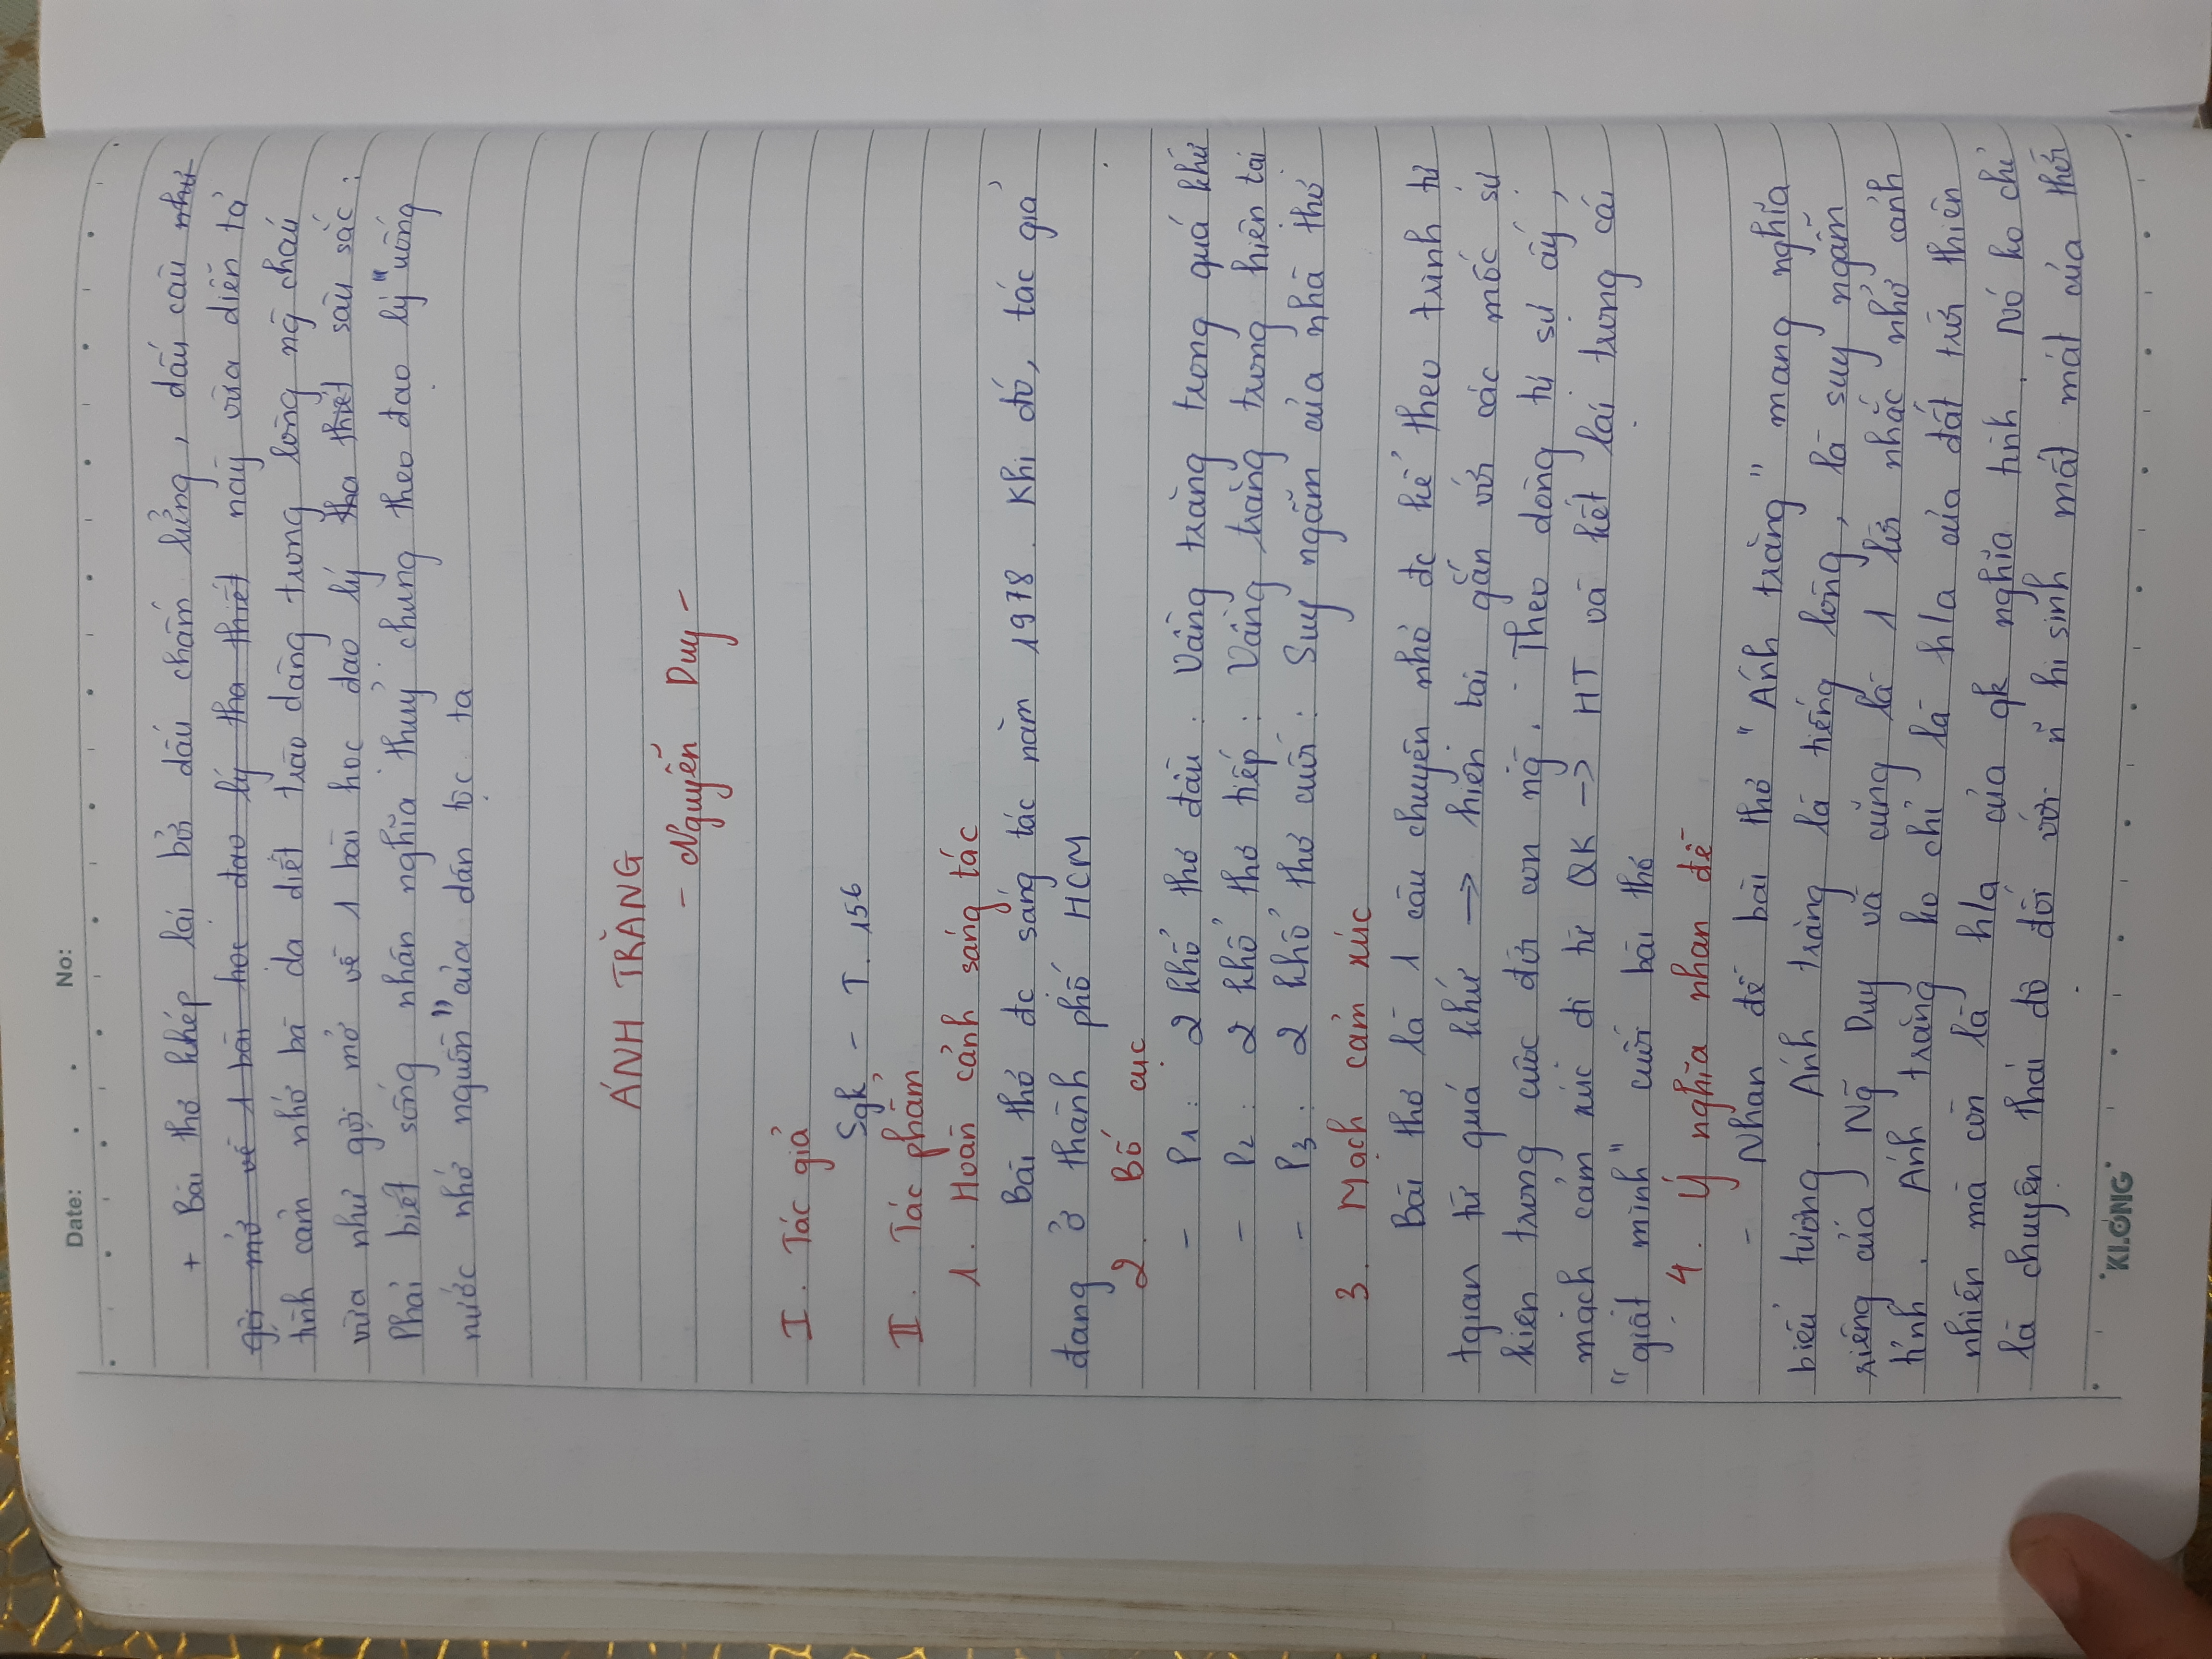 Date: . . No:
+ Bài thơ khép lại bởi dấu chấm lửng, dấu câu như
gợi mở về 1 bài học đạo lý tha thiết này vừa diễn tả
tình cảm nhớ bà da diết trào dâng trong lòng ng̃ cháu
vừa như gợi mở về 1 bài học đạo lý tha thiết sâu sắc:
Phải biết sống nhân nghĩa thuỷ chung theo đạo lý "uống
nước nhớ nguồn" của dân tộc ta
ÁNH TRĂNG
- Nguyễn Duy -
I. Tác giả
Sgk - T. 156
II. Tác phẩm
1. Hoàn cảnh sáng tác
Bài thơ đc sáng tác năm 1978. Khi đó, tác giả
đang ở thành phố HCM
2. Bố cục
- P1: 2 khổ thơ đầu: Vầng trăng trong quá khứ
- P2: 2 khổ thơ tiếp: Vầng trăng trong hiện tại
- P3: 2 khổ thơ cuối: Suy ngẫm của nhà thơ
3. Mạch cảm xúc
Bài thơ là 1 câu chuyện nhỏ đc kể theo trình tự
tgian từ quá khứ → hiện tại gắn với các mốc sự
kiện trong cuộc đời con ng̃. Theo dòng tự sự ấy,
mạch cảm xúc đi từ QK → HT và kết lại trong cái
"giật mình" cuối bài thơ
4. Ý nghĩa nhan đề
- Nhan đề bài thơ "Ánh trăng" mang nghĩa
biểu tượng. Ánh trăng là tiếng lòng, là suy ngẫm
riêng của Ng̃ Duy và cũng là 1 lời nhắc nhở cảnh
tỉnh. Ánh trăng ko chỉ là h/a của đất trời thiên
nhiên mà còn là h/a của qk nghĩa tình. Nó ko chỉ
là chuyện thái độ đối với ñ hi sinh mất mát của thời
KLONG